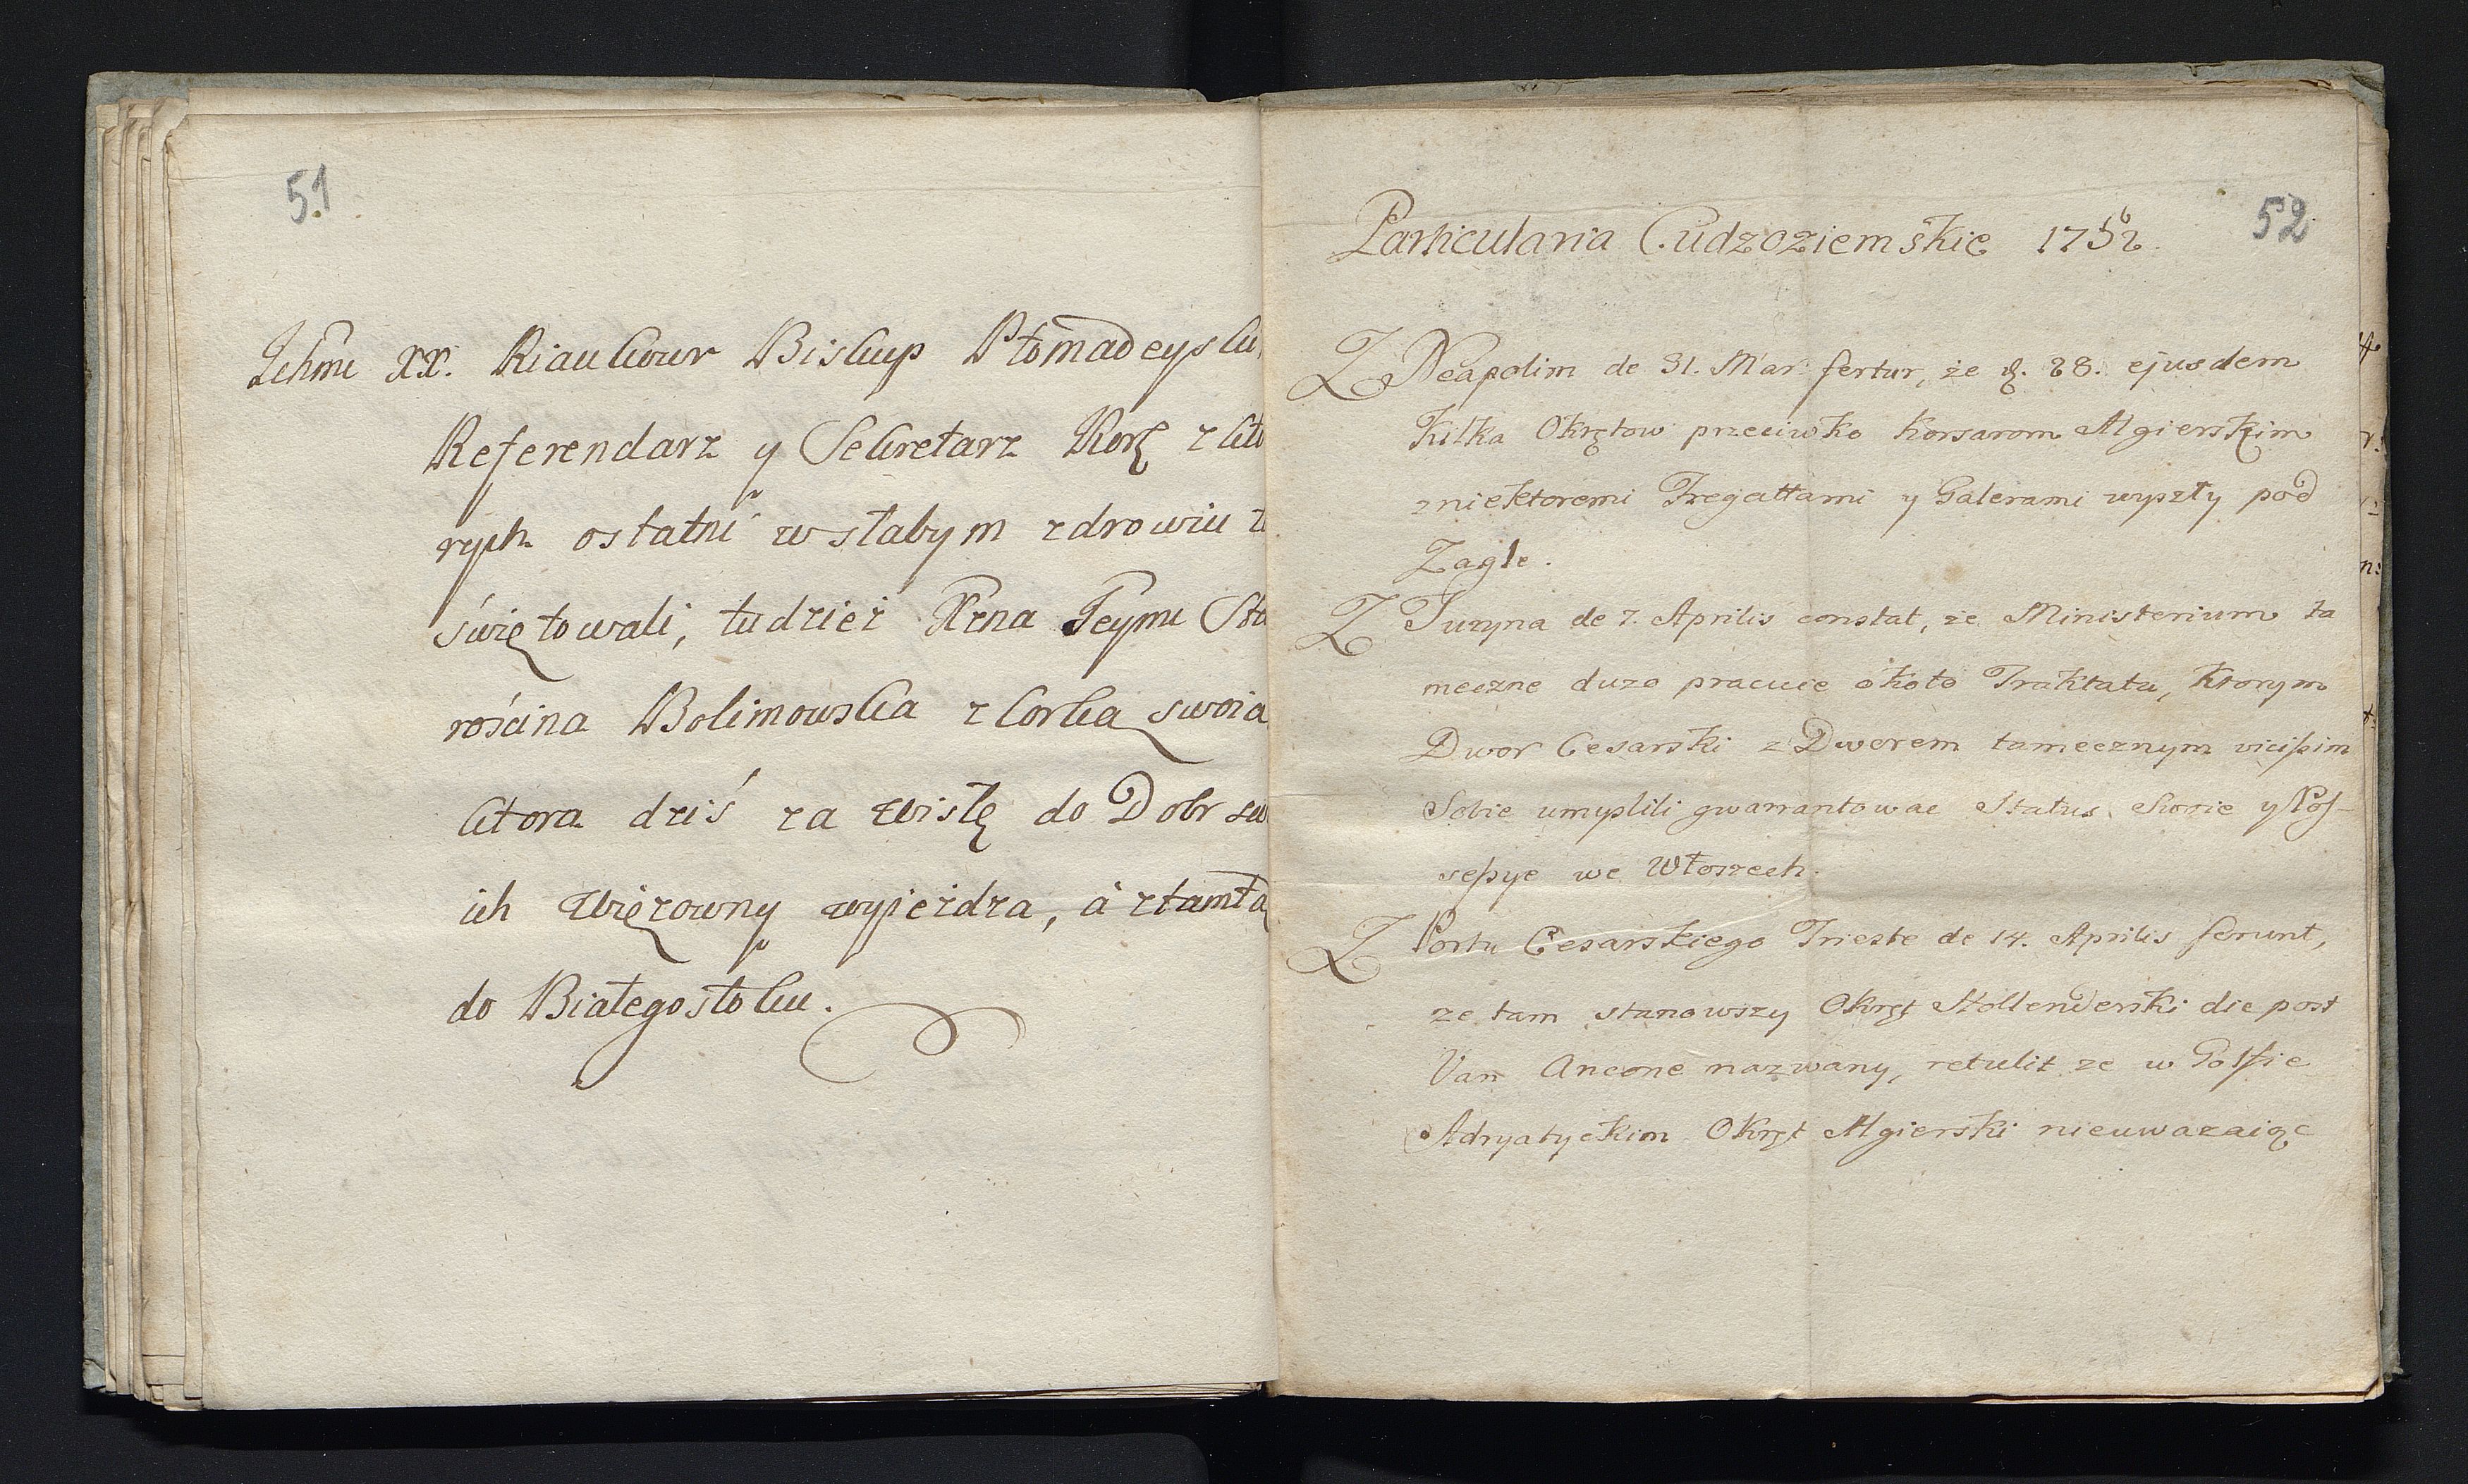 51
Ichmć XX. Riaucour Biskup Ptomadeysk
Referendarz y Sekretarz Kor. z któ
rych ostatni w słabym zdrowiu
świętowali, tudzież Xzna Jeymć Sta
rościna Bolimowska z Corką swoią
ktora dziś za Wisłę do Dobr sw
ich Więzowny wyjeżdza, à ztamtą
do Białegostoku.
52
Particularia Cudzoziemskie 1752
Z Neapolim de 31. Mar. fertur, że d. 28. ejusdem
kilka Okrętow przeciwko Korsarom Algierskim
z niektoremi Fregattami y Galerami wyszły pod
Zagle.
Z Turyna de 7. Aprilis constat, że Ministerium ta
meczne duzo pracuie około Traktatu, ktorym
Dwor Cesarski z Dworem tamecznym vicissim
Sobie umyslili gwarrantowac Status Swoie y Pos-
sessye we Włoszech.
Z Portu Cesarskiego Trieste de 14. Aprilis ferunt,
ze tam stanowszy Okręt Hollenderski die post
Van Ancone nazwany, retulit ze w Golfie
Adryatyckim Okręt Algierski nieuwazaiąc